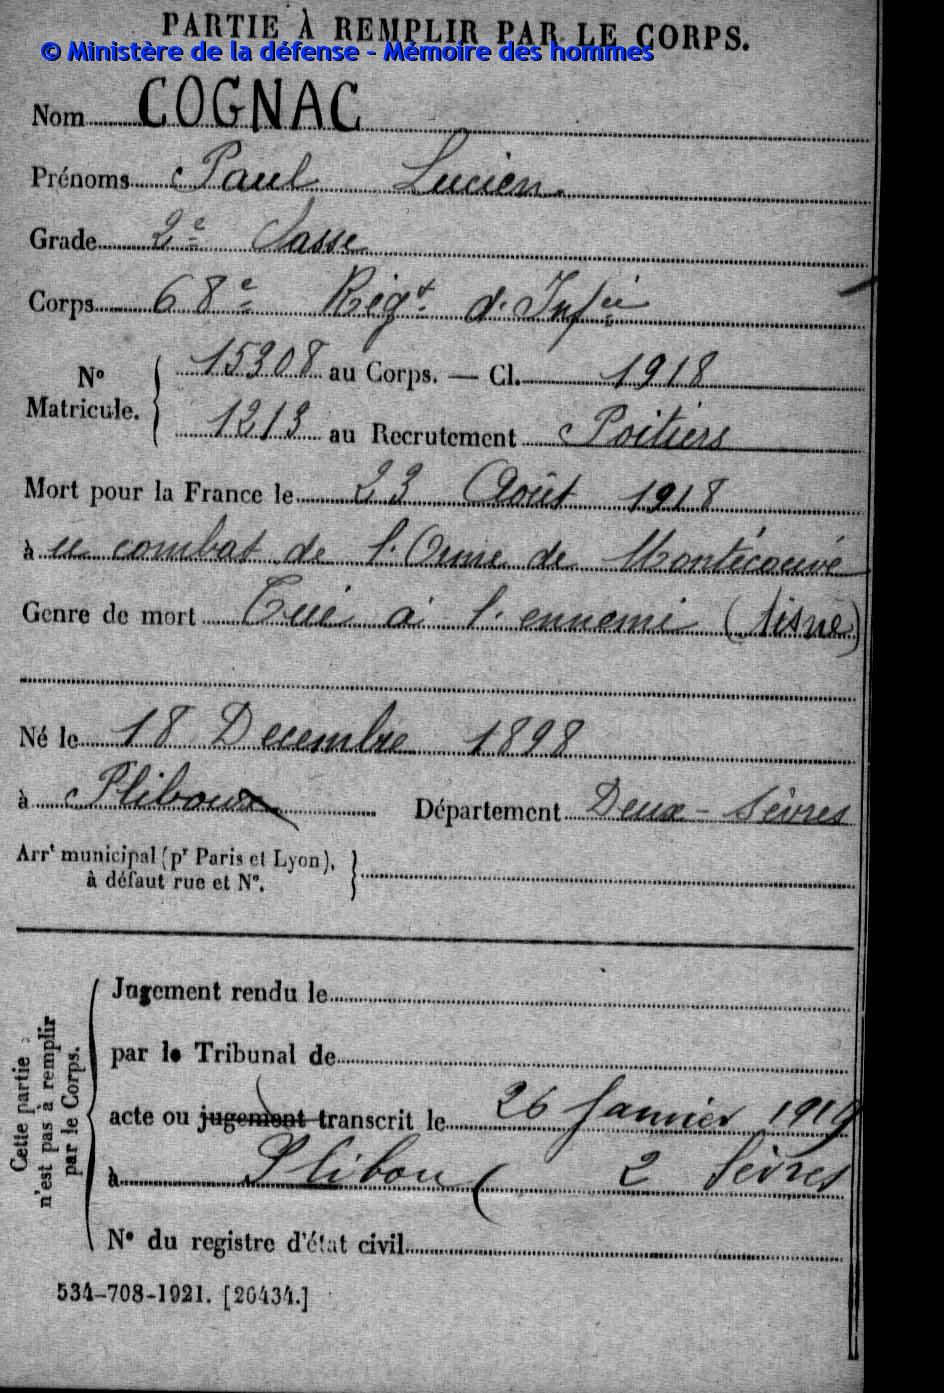 PARTIE À REMPLIR PAR LE CORPS.
© Ministère de la défense - Mémoire des hommes
Nom COGNAC
Prénoms Paul Lucien
Grade 2e Classe
Corps 68e Régt d'Infie
No Matricule. 15308 au Corps. — Cl. 1918
1213 au Recrutement Poitiers
Mort pour la France le 23 Août 1918
à u combat de l'Orme de Montécouvé
Genre de mort Tué à l'ennemi (Aisne)
Né le 18 Decembre 1898
à Pliboux Département Deux-Sèvres
Arrt municipal (pr Paris et Lyon),
à défaut rue et No.
Cette partie n'est pas à remplir par le Corps.
Jugement rendu le
par le Tribunal de
acte ou jugement transcrit le 26 Janvier 1919
à Plibou ( 2 Sèvres
No du registre d'état civil
534-708-1921. [26434.]